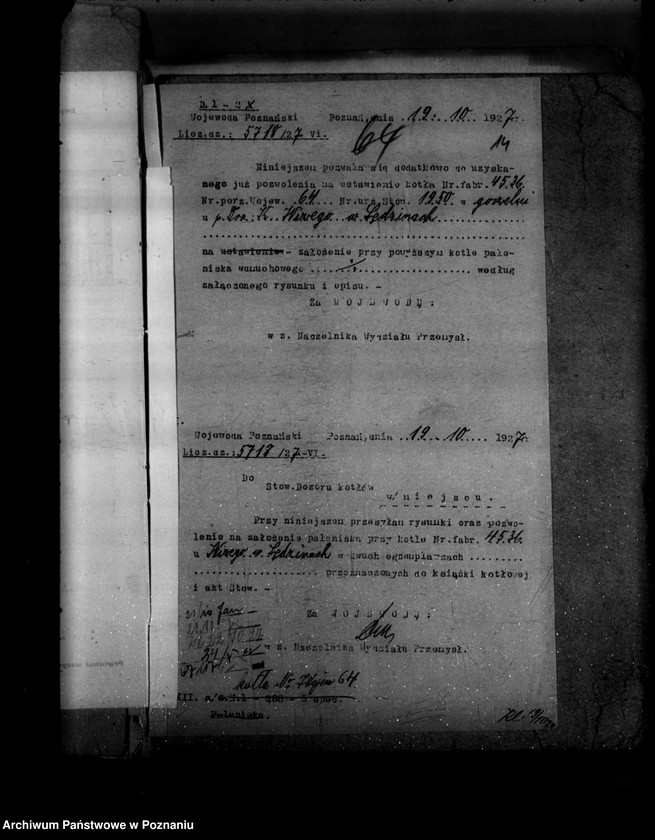 D.1 - 2x
Wojewoda Poznański Poznań, dnia .12. 10. 1927r.
Licz.dz.: 5718/27 VI.
64
14
Niniejszem pozwala się dodatkowo do uzyska-
nego już pozwolenia na ustawienie kotła Nr.fabr. 4536.
Nr.porz.Wojew. .64... Nr.urz.Stow. 1250. w gorzelni
u p.
w. Lędzinach
na ustawienie - założenie przy powyższym kotle pale-
niska wdmuchowego według
załączonego rysunku i opisu. -
Za WOJEWODĘ:
w z. Naczelnika Wydziału Przemysł.
Wojewoda Poznański Poznań, dnia .12.. 10. ... 1927r.
Licz.dz.: 5718/27-VI.
Do
Stow.Dozoru kotłów
w/miejscu.
Przy niniejszem przesyłam rysunki oraz pozwo-
lenie na założenie paleniska przy kotle Nr.fabr. 4536.
u w. Lędzinach w dwuch egzemplarzach .........
przeznaczonych do książki kotłowej
i akt Stow. -
Za WOJEWODĘ:
w z. Naczelnika Wydziału Przemysł.
kotle Nr. Wojew 64.
III.
Paleniska.
Archiwum Państwowe w Poznaniu